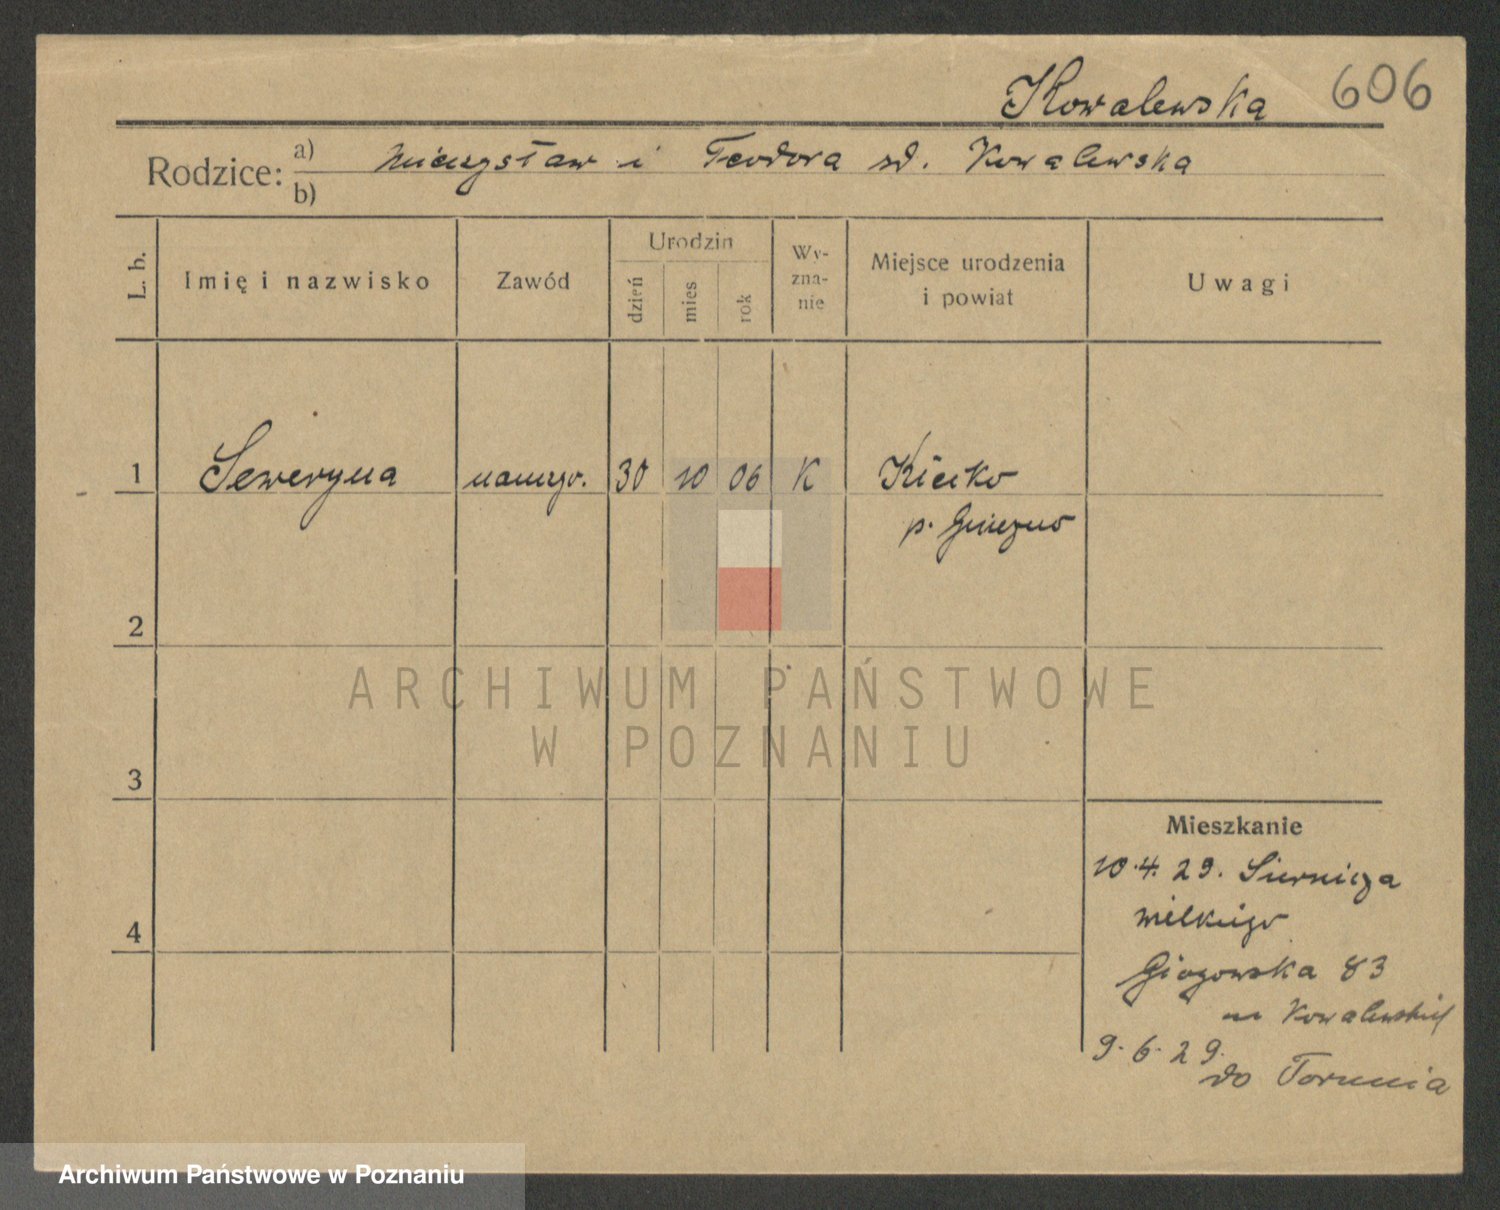 Kowalewska 606
Rodzice: a) Mieczysław i Teodora zd. Kowalewska
b)
L. b.
Imię i nazwisko
Zawód
Urodzin
dzień
mies
rok
Wy-
zna-
nie
Miejsce urodzenia
i powiat
Uwagi
1 Seweryna nauczyc. 30 10 06 K Kiecko
p. Gniezno
2
3
4
ARCHIWUM PAŃSTWOWE
W POZNANIU
Mieszkanie
10.4.29.
Głogowska 83
u Kowalewskich
9.6.29.
do Torunia
Archiwum Państwowe w Poznaniu